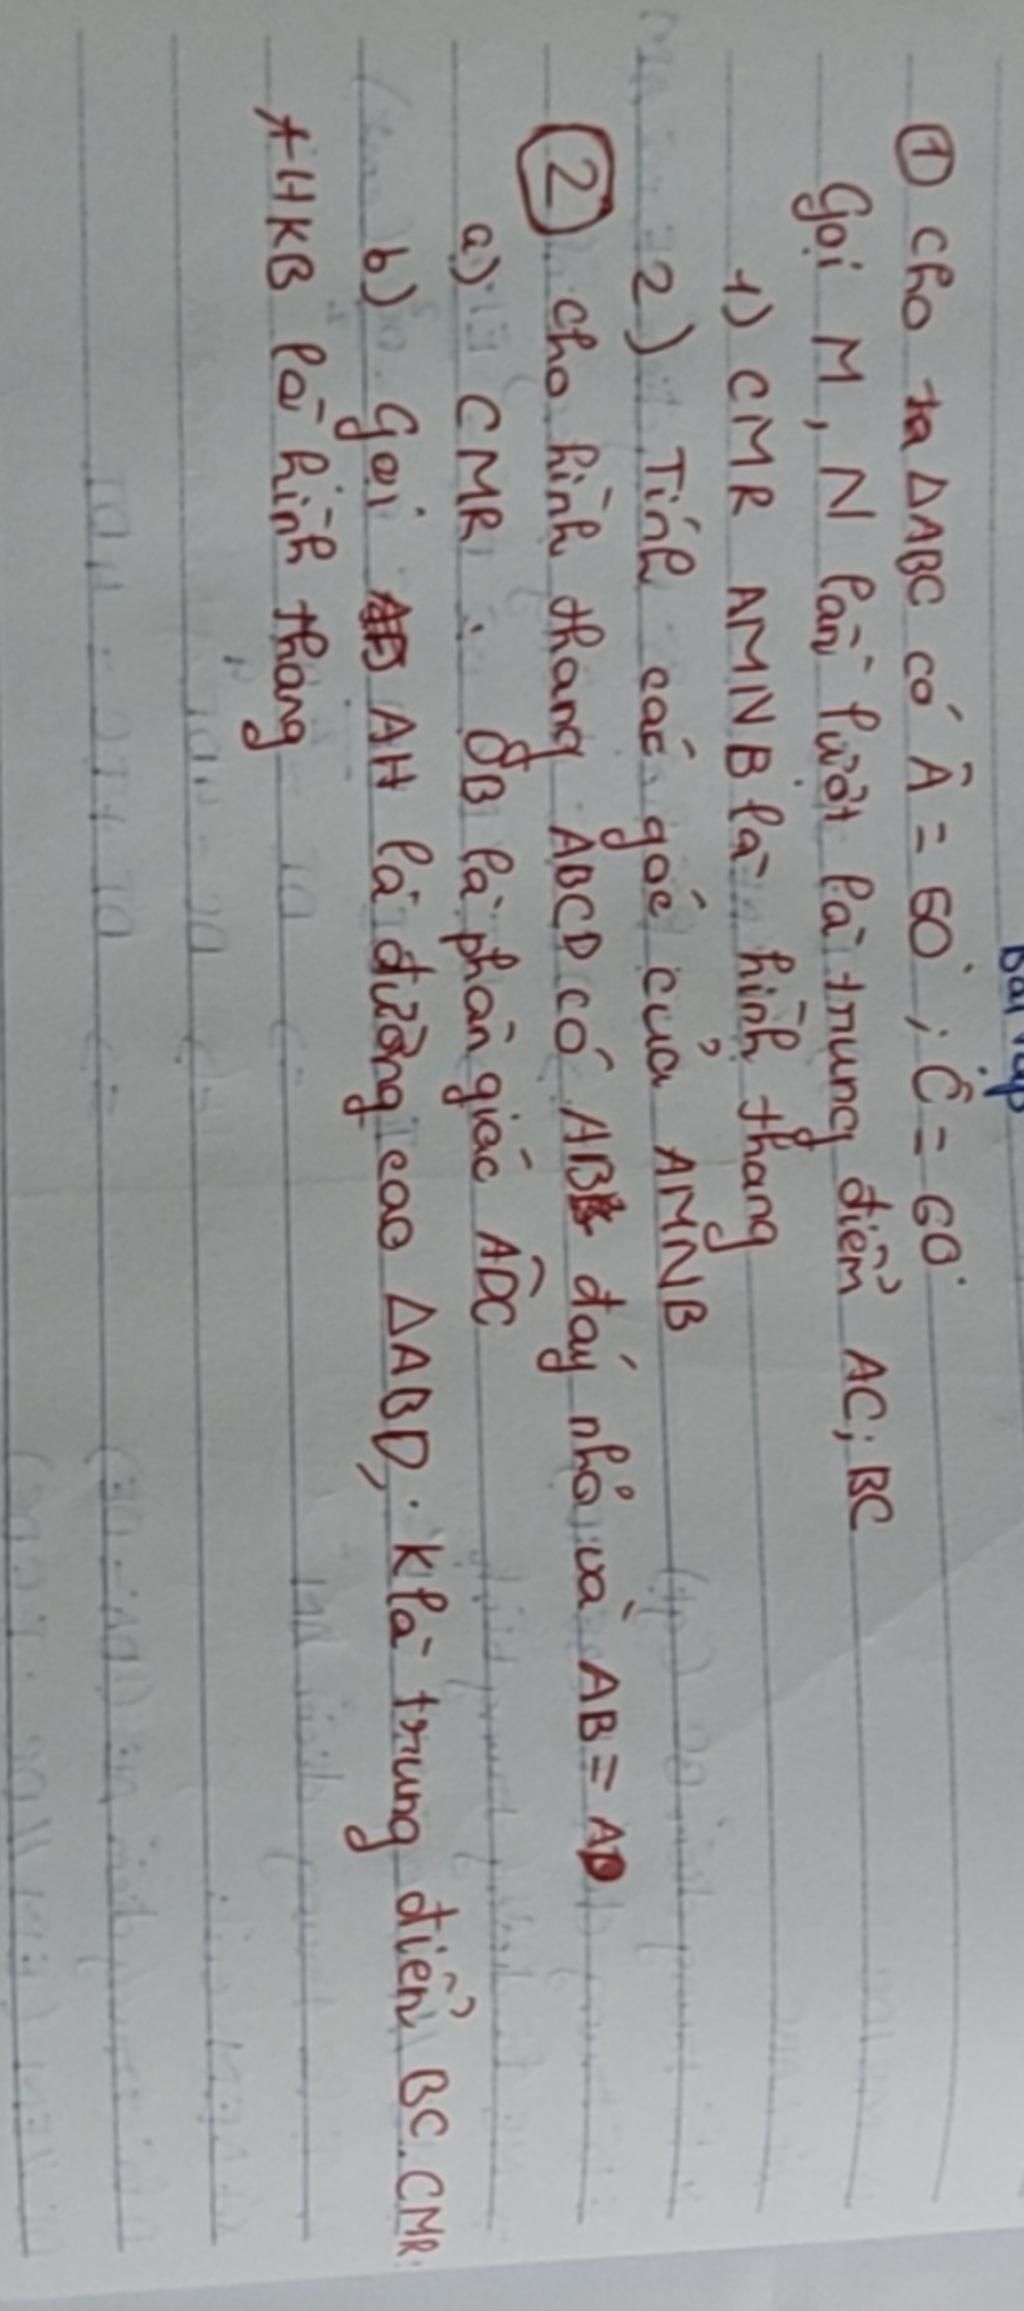 Bài tập
① Cho ΔABC có Â = 50°; Ĉ = 60°
Gọi M, N lần lượt là trung điểm AC; BC
1) CMR AMNB là hình thang
2) Tính các góc của AMNB
② Cho hình thang ABCD có AB đáy nhỏ và AB = AD
a) CMR: DB là phân giác ADC
b) Gọi AH là đường cao ΔABD, K là trung điểm BC. CMR:
AHKB là hình thang